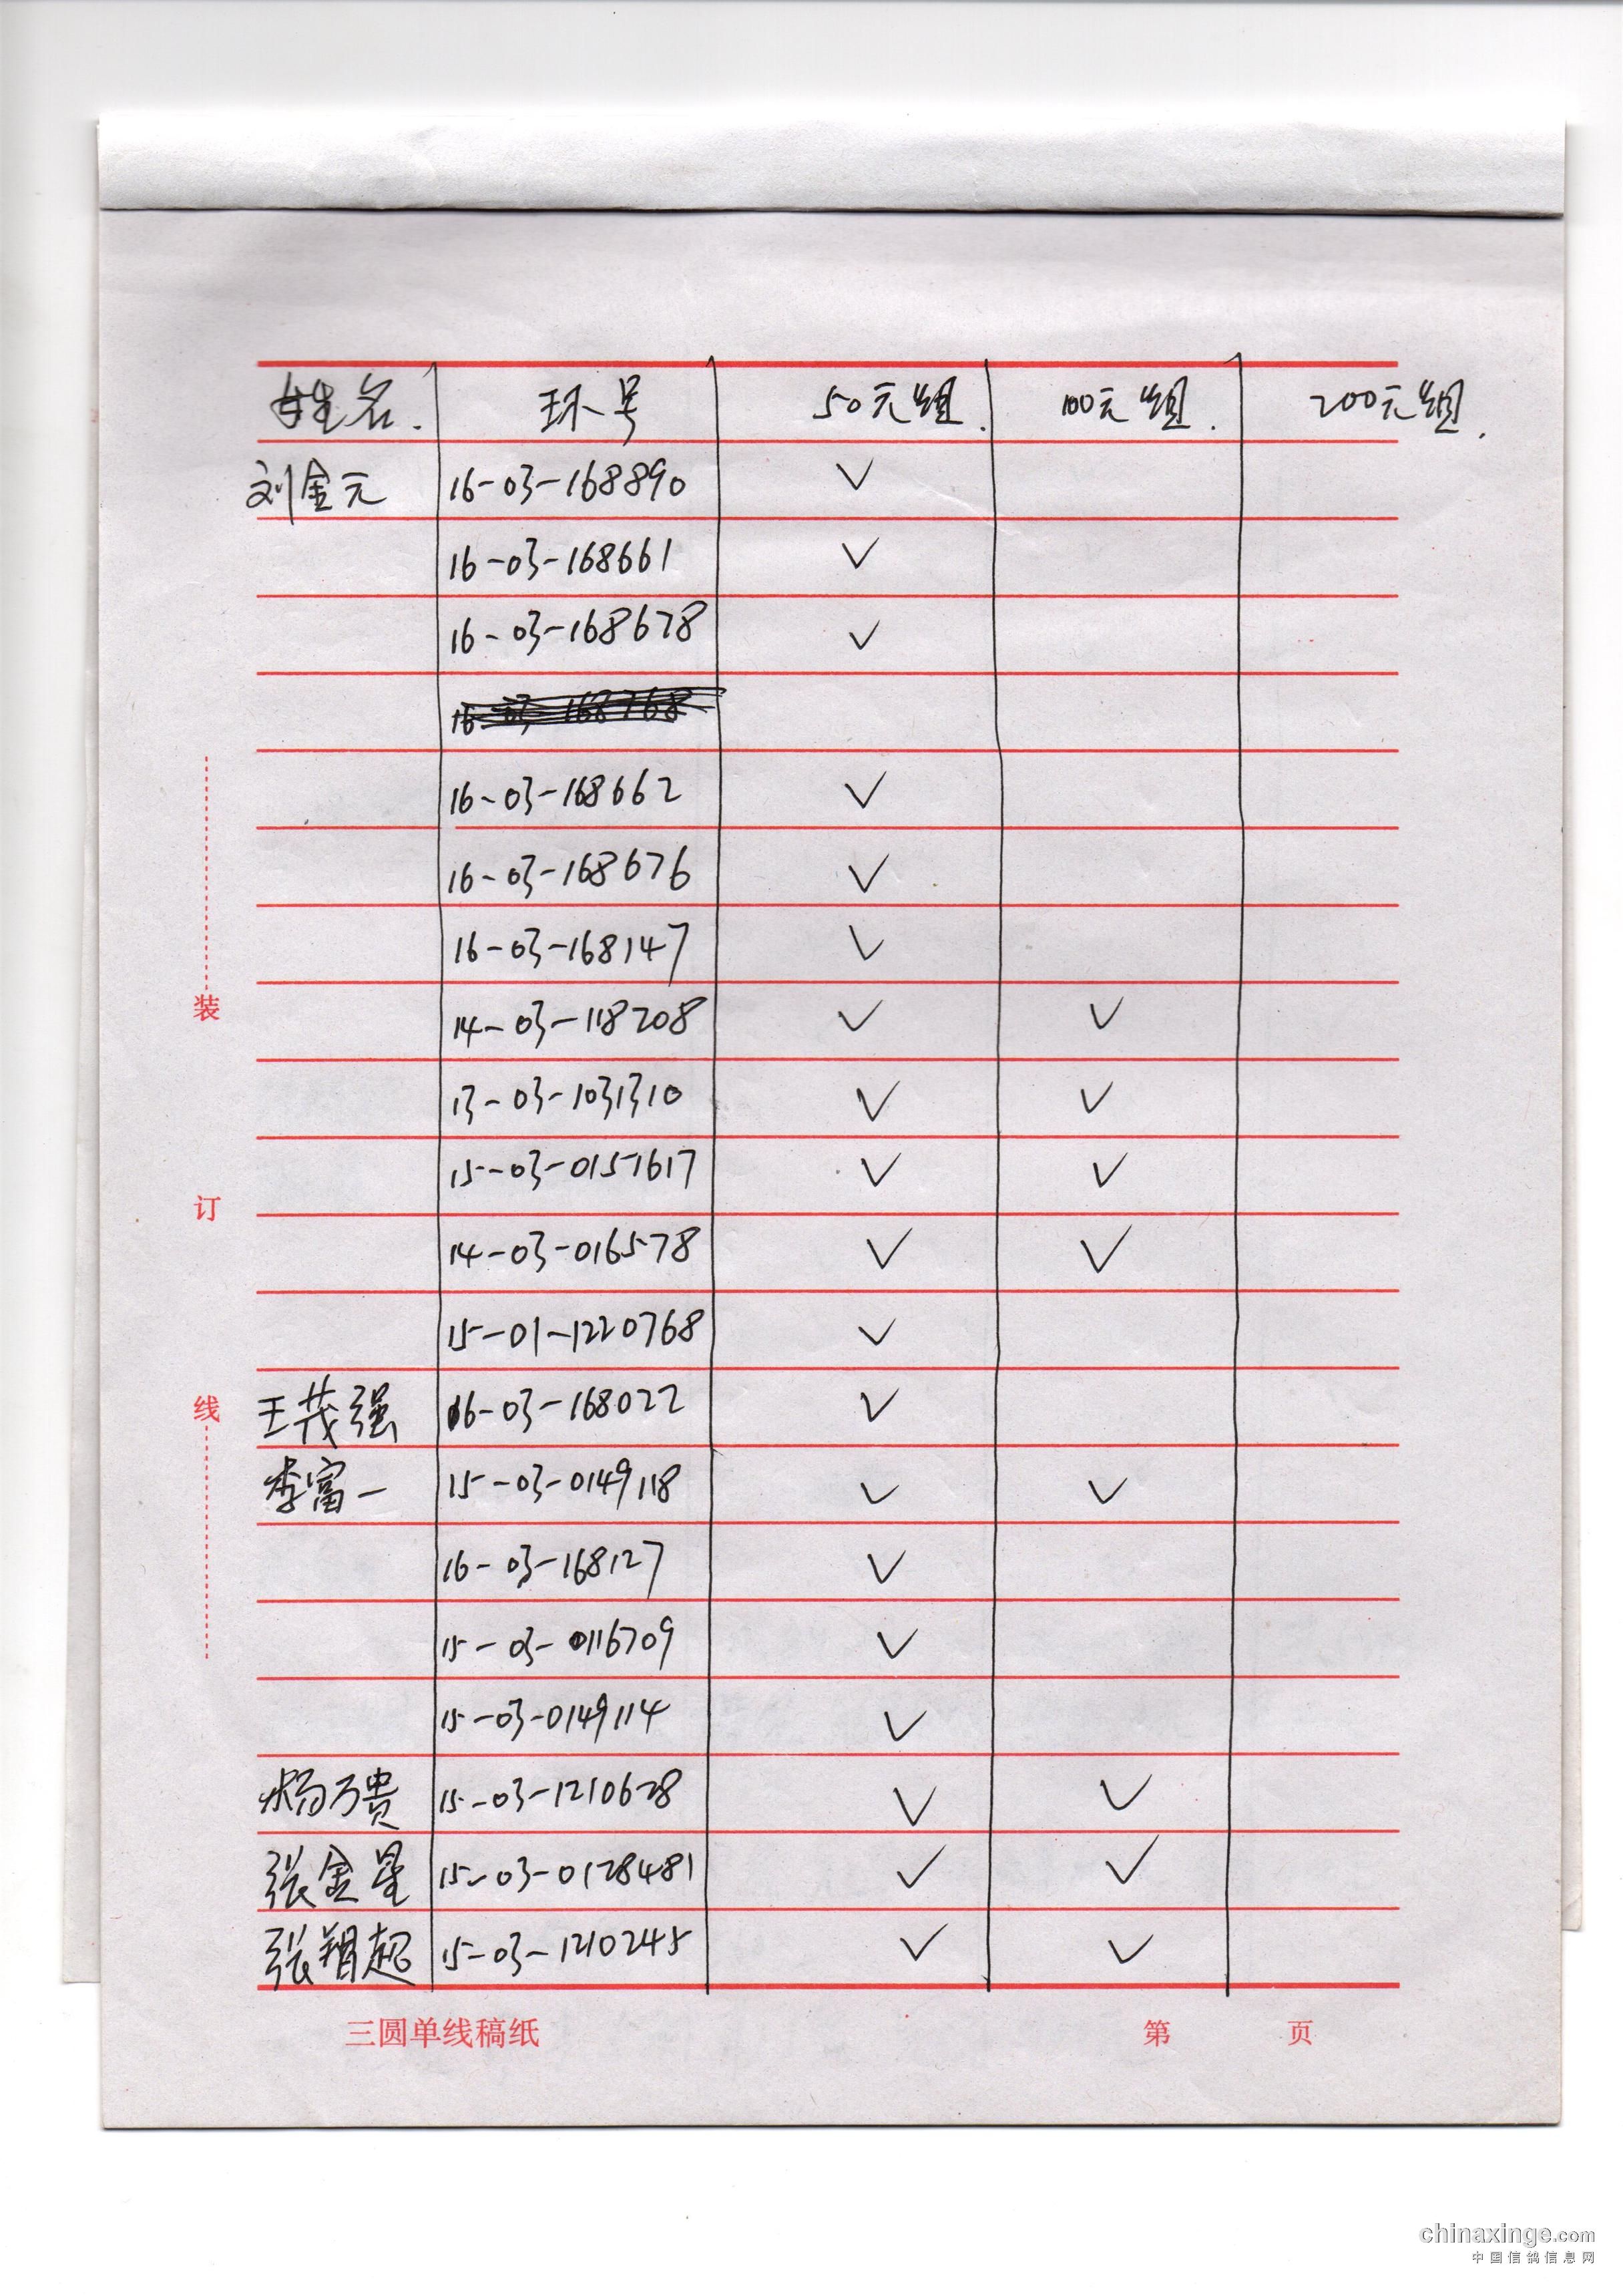 姓名. 环号 50元组. 100元组. 200元组.
刘金元 16-03-168890 ✓
16-03-168661 ✓
16-03-168678 ✓
16-03-168768
16-03-168662 ✓
16-03-168676 ✓
16-03-168147 ✓
14-03-118208 ✓ ✓
13-03-1031310 ✓ ✓
15-03-0151617 ✓ ✓
14-03-016578 ✓ ✓
15-01-1220768 ✓
王茂强 16-03-168022 ✓
李富一 15-03-0149118 ✓ ✓
16-03-168127 ✓
15-03-0116709 ✓
15-03-0149114 ✓
杨万贵 15-03-1210628 ✓ ✓
张金星 15-03-0128481 ✓ ✓
张翔超 15-03-1210245 ✓ ✓
装
订
线
三圆单线稿纸 第 页
chinaxinge.com
中国信鸽信息网